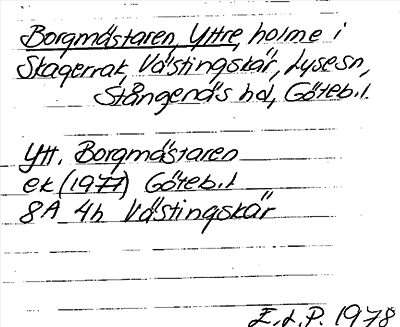 Borgmästaren, Yttre, holme i
Skagerrak, Västingskär, Lysesn,
Stångenäs hd, Göteb.l.
Ytt. Borgmästaren
ek (1977) Göteb.l
8A 4h Västingskär
E.L.P. 1978